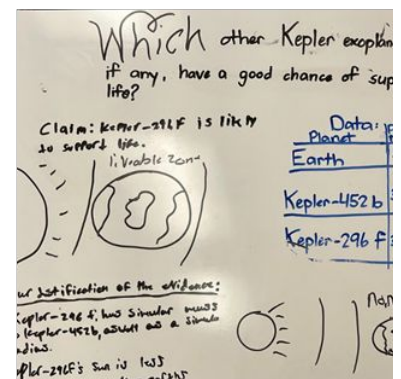 Which other Kepler exoplan
if any, have a good chance of sup
life?
Claim: Kepler-296f is likly
to support life.
liveable zone
Data:
Planet
Earth
Kepler-452b
Kepler-296 f
ur Justification of the evidence:
Kepler-296 f, has simular mass
Kepler-452b, aswell as a simula
adius.
pler-296f's Sun is less